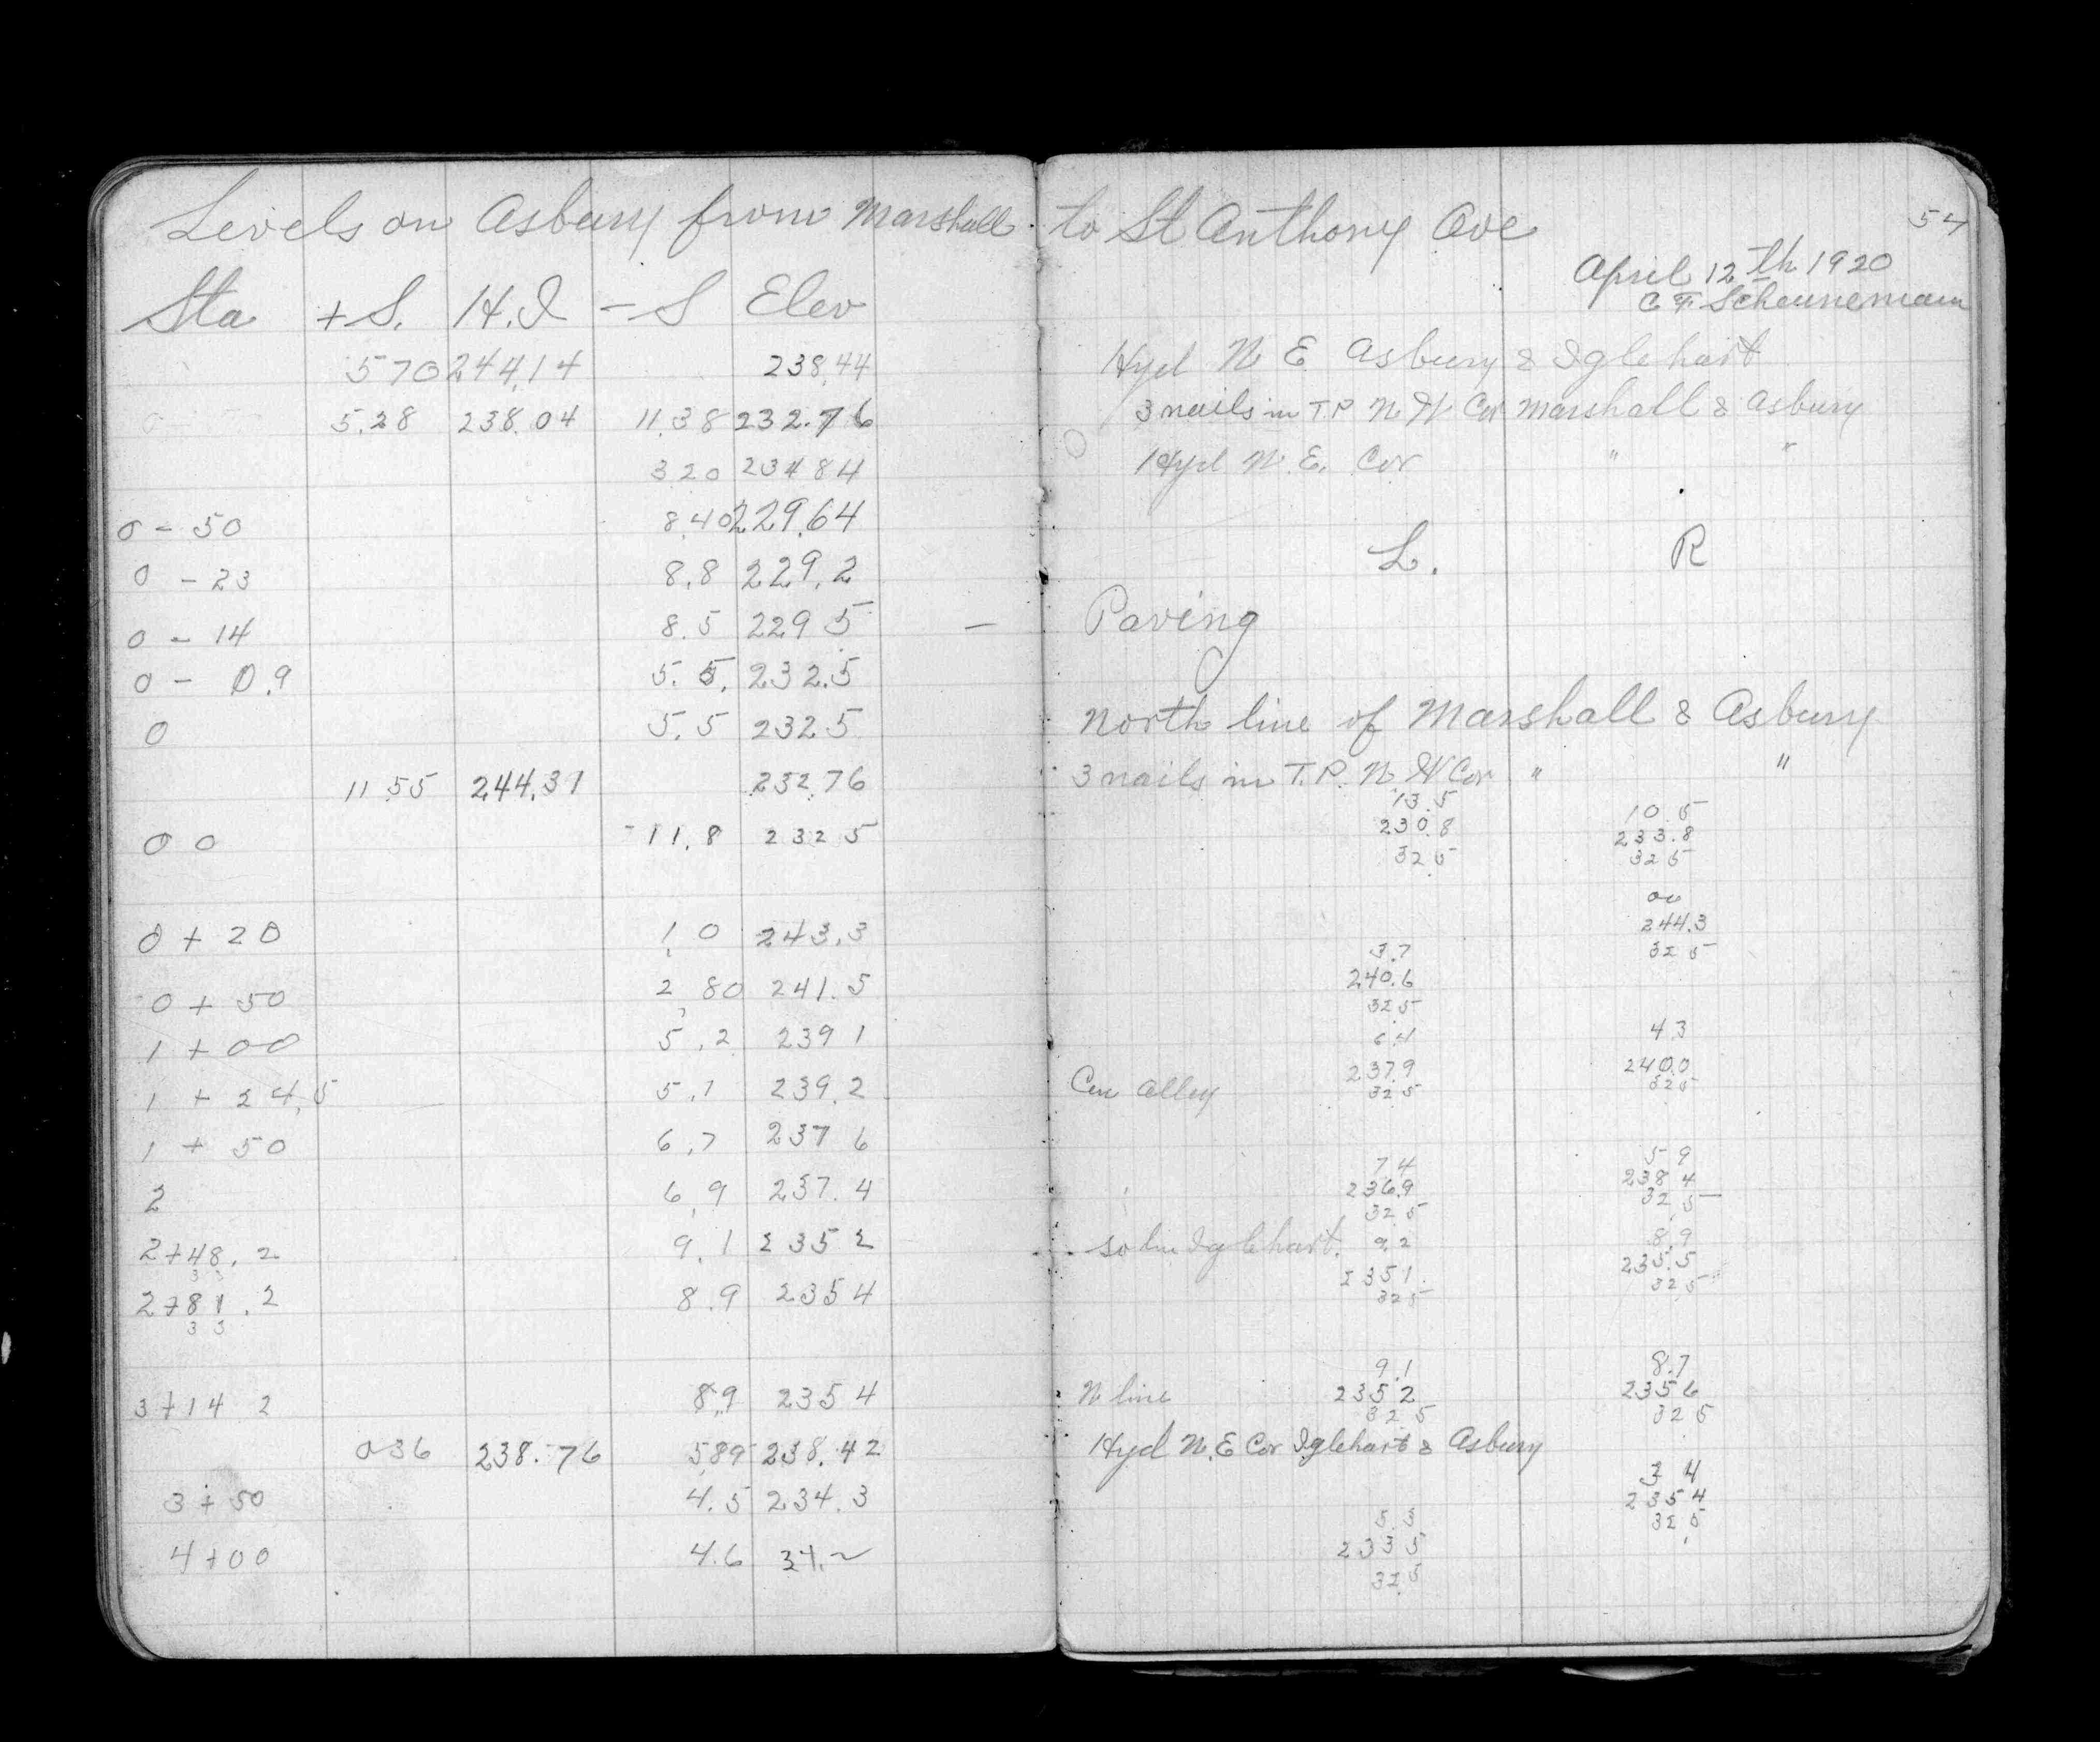 Levels on Asbury from Marshall to St Anthony Ave 54
April 12th 1920
C F Scheunemann
Sta +S. H.I -S Elev
570 244.14 238.44 Hyd N E Asbury & Iglehart
5.28 238.04 11.38 232.76 3 nails in T.P. N W Cor Marshall & Asbury
320 23484 Hyd N.E. Cor " "
0 - 50 8.40 229.64
L. R
0 - 23 8.8 229.2
0 - 14 8.5 229 5 — Paving
0 - 0.9 5.5. 232.5
0 5.5 232.5 North line of Marshall & Asbury
11 55 244.31 232.76 3 nails in T.P. N W Cor " "
13.5 10.5
0 0 -11.8 232 5 230.8 233.8
32 5 32 5
00
0 + 20 1.0 243.3 244.3
3.7 32 5
0 + 50 2.80 241.5 240.6
32 5
1 + 00 5.2 239 1 6.4 4.3
237.9 240.0
1 + 24.5 5.1 239.2 Cen Alley 32 5 32 5
1 + 50 6.7 237 6
7 4 5 9
2 6.9 237.4 236.9 238 4
32 5 32 5
2+48.2 9.1 235 2 so line Iglehart. 9.2 8.9
33 2351. 235.5
2+81.2 8.9 235 4 32 5 32 5
33
9.1 8.7
3+14 2 8.9 235 4 N line 235.2 235 6
32 5 32 5
036 238.76 589 238.42 Hyd N.E Cor Iglehart & Asbury
3 4
3 + 50 4.5 234.3 235 4
5.3 32 5
4+00 4.6 34.2 233 5
32.5